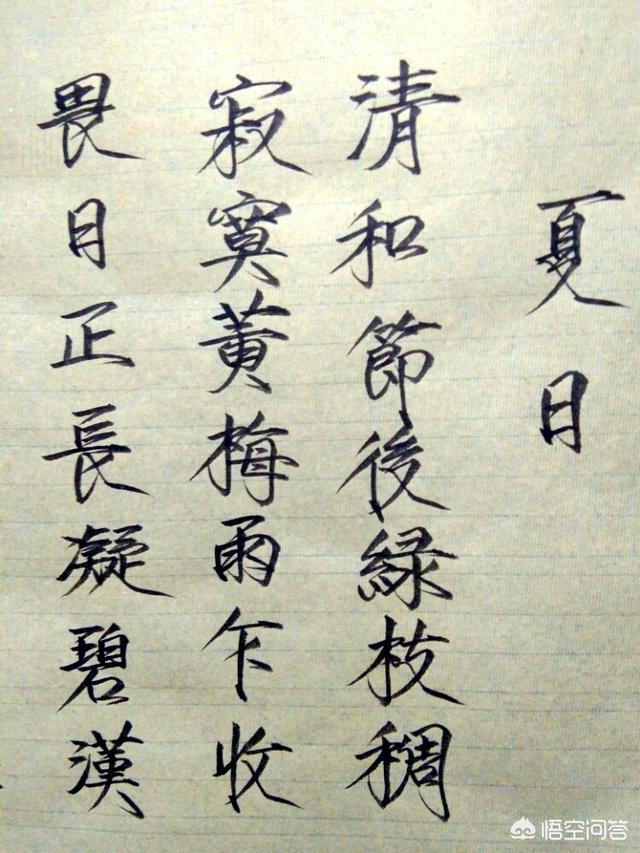 夏日
清和節後緑枝稠
寂寞黄梅雨乍收
畏日正長凝碧漢
悟空问答